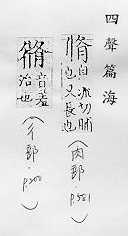 四聲篇海
脩 自流切脯
也又長也
(肉部·P581)
音羞
治也
(彳部·P200)